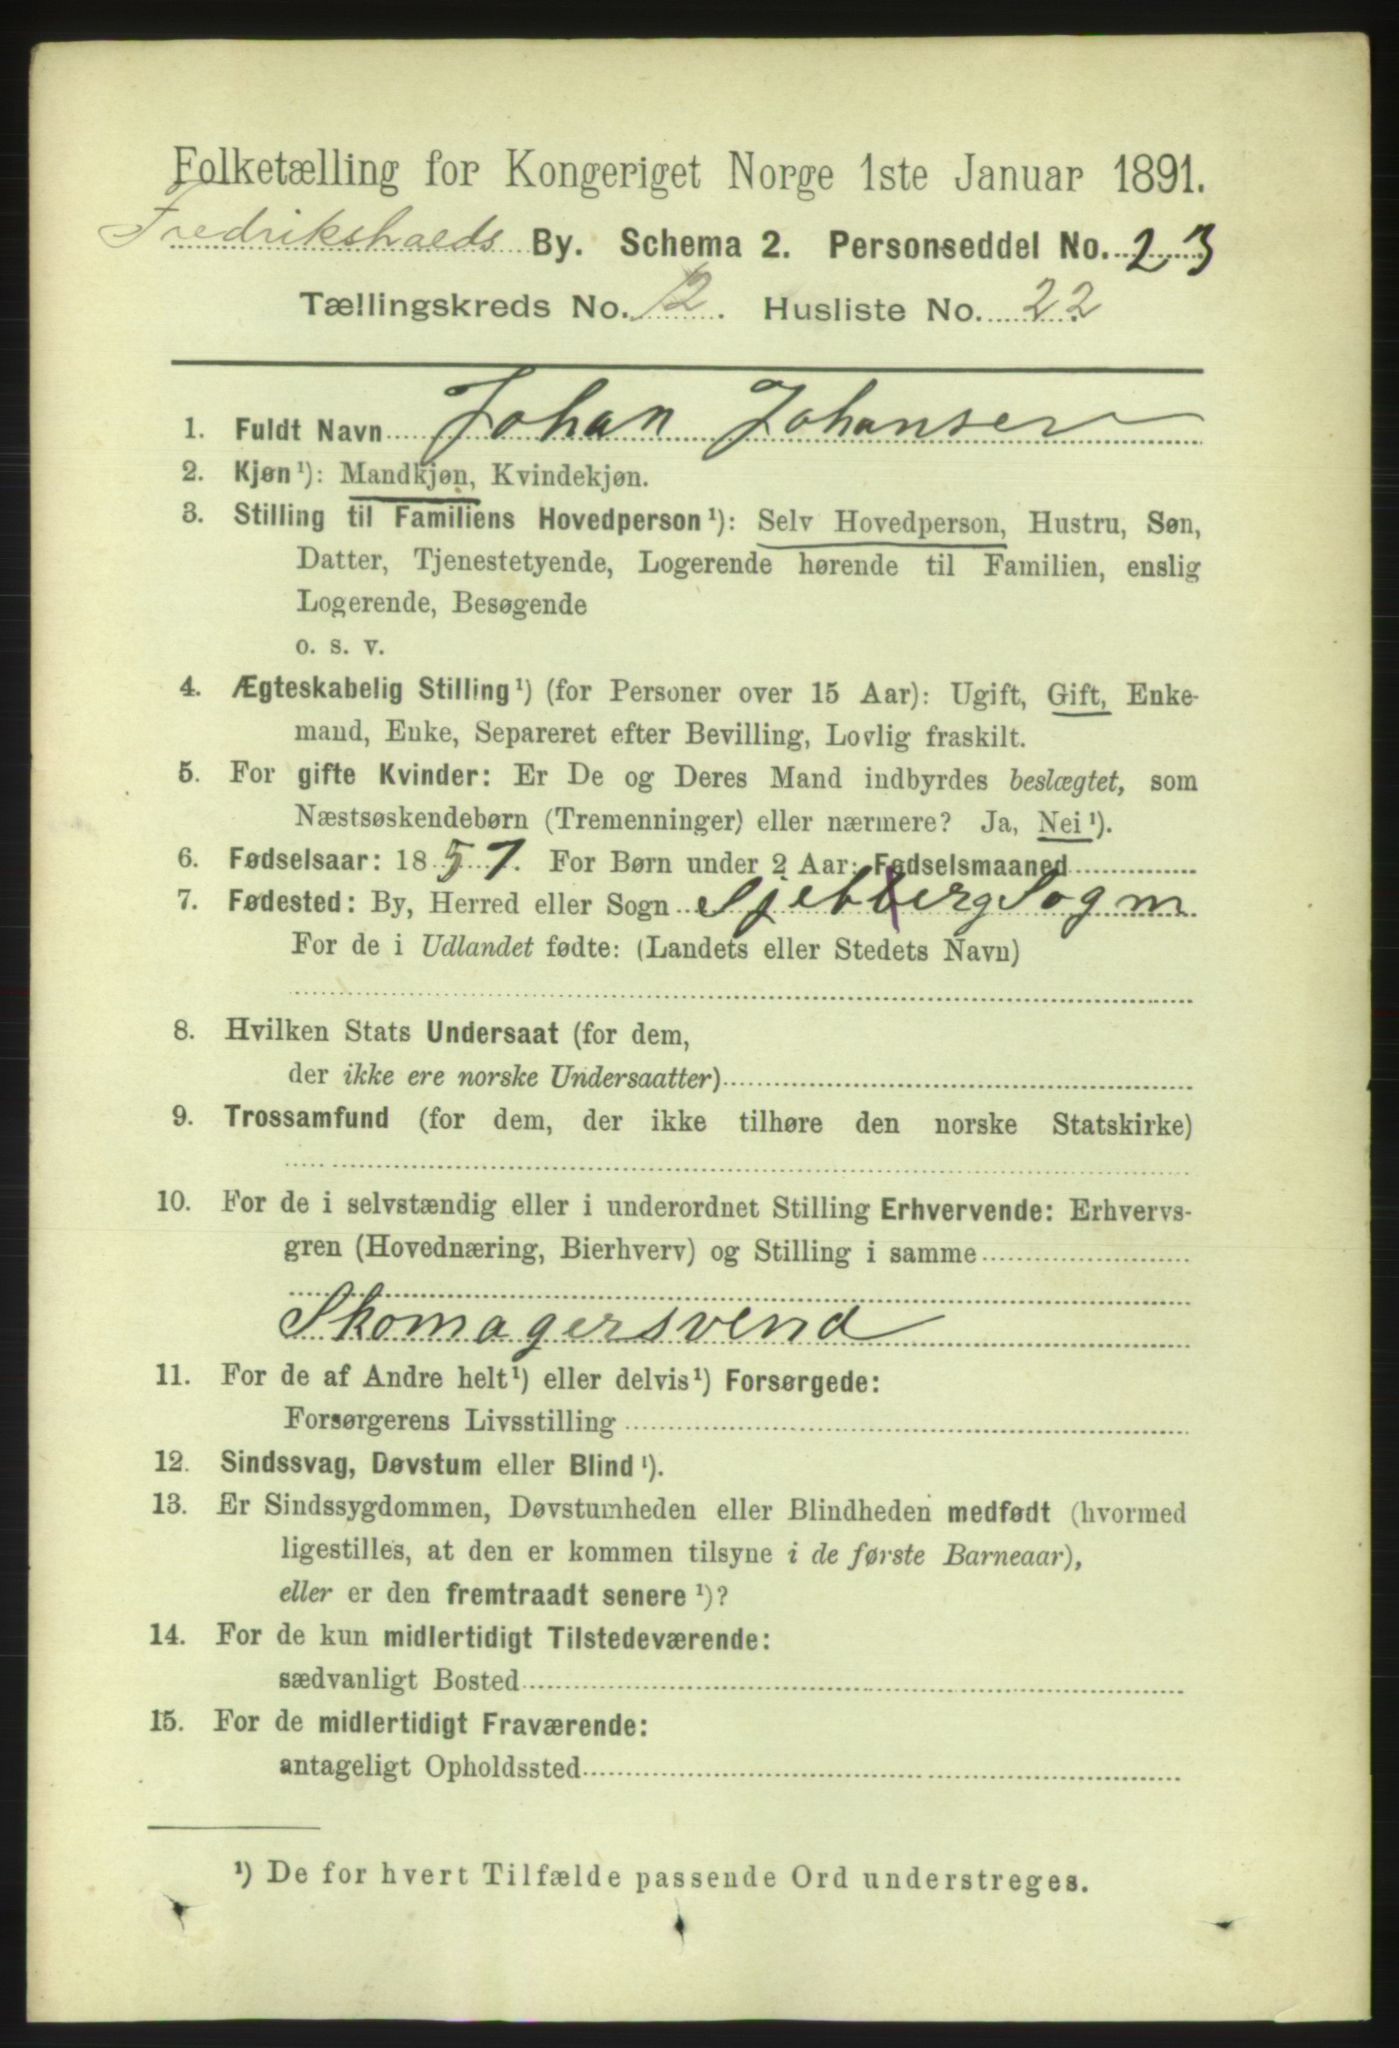 Folketælling for Kongeriget Norge 1ste Januar 1891.
Fredrikshalds By. Schema 2. Personseddel No. 23
Tællingskreds No. 12. Husliste No. 22
1. Fuldt Navn Johan Johansen
2. Kjøn¹): Mandkjøn, Kvindekjøn.
3. Stilling til Familiens Hovedperson¹): Selv Hovedperson, Hustru, Søn,
Datter, Tjenestetyende, Logerende hørende til Familien, enslig
Logerende, Besøgende
o. s. v.
4. Ægteskabelig Stilling¹) (for Personer over 15 Aar): Ugift, Gift, Enke-
mand, Enke, Separeret efter Bevilling, Lovlig fraskilt.
5. For gifte Kvinder: Er De og Deres Mand indbyrdes beslægtet, som
Næstsøskendebørn (Tremenninger) eller nærmere? Ja, Nei¹).
6. Fødselsaar: 1857. For Børn under 2 Aar: Fødselsmaaned
7. Fødested: By, Herred eller Sogn Sjebberg Sogm
For de i Udlandet fødte: (Landets eller Stedets Navn)
8. Hvilken Stats Undersaat (for dem,
der ikke ere norske Undersaatter)
9. Trossamfund (for dem, der ikke tilhøre den norske Statskirke)
10. For de i selvstændig eller i underordnet Stilling Erhvervende: Erhvervs-
gren (Hovednæring, Bierhverv) og Stilling i samme
Skomagersvend
11. For de af Andre helt¹) eller delvis¹) Forsørgede:
Forsørgerens Livsstilling
12. Sindssvag, Døvstum eller Blind¹).
13. Er Sindssygdommen, Døvstumheden eller Blindheden medfødt (hvormed
ligestilles, at den er kommen tilsyne i de første Barneaar),
eller er den fremtraadt senere¹)?
14. For de kun midlertidigt Tilstedeværende:
sædvanligt Bosted
15. For de midlertidigt Fraværende:
antageligt Opholdssted
¹) De for hvert Tilfælde passende Ord understreges.